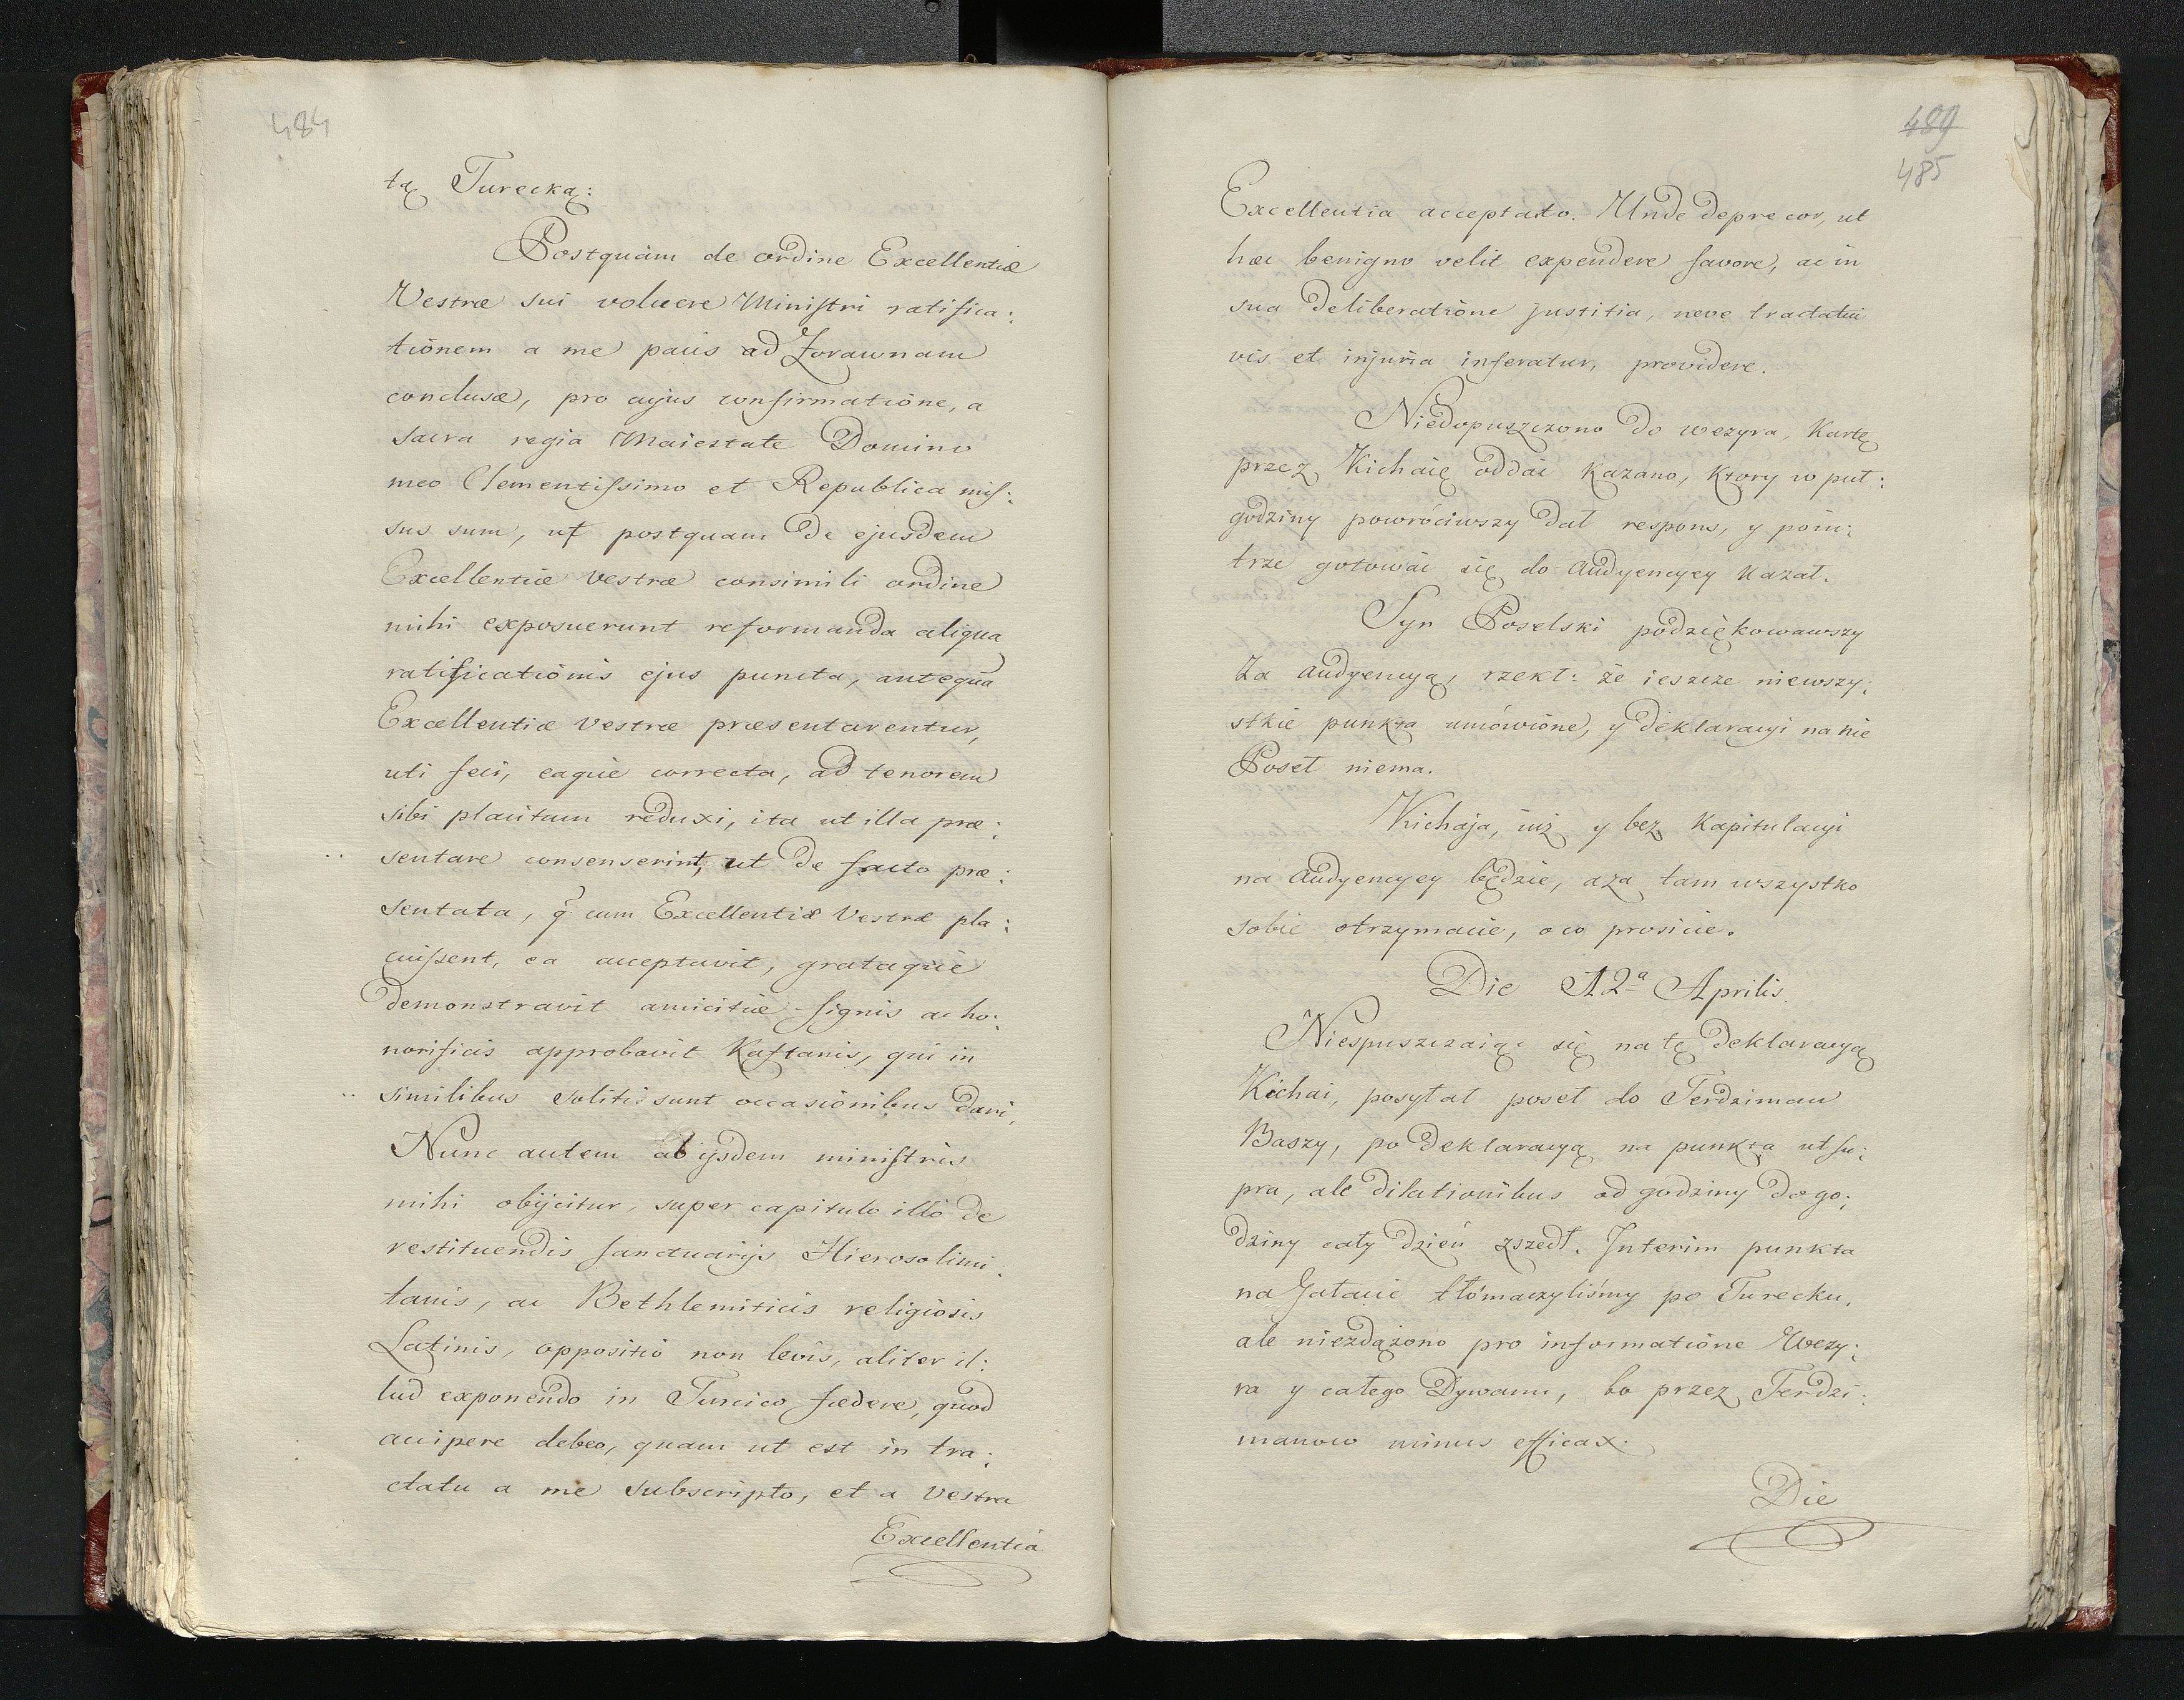 484
tą Turecką:
Postquàm de ordine Excellentiæ
Vestræ sui voluere Ministri ratifica:
tionem a me pacis ad Zorawnam
conclusæ, pro cujus confirmatione, a
sacra regia Maiestate Domino
meo Clementissimo et Republica mis:
sus sum, ut postquam de ejusdem
Excellentiæ vestræ consimili ordine
mihi exposuerunt reformanda aliqua
ratificationis ejus puncta, antequā
Excellentiæ vestræ præsentarentur,
uti feci, eaquè correcta, ad tenorem
sibi placitum reduxi, ita ut illa præ:
sentare consenserint, ut de facto præ:
sentata, q̃ cum Excellentiæ Vestræ pla:
cuissent, ea acceptavit, grataquè
demonstravit amicitiæ signis ac ho:
norificis approbavit Kaftanis, qui in
similibus soliti sunt occasionibus dari,
Nunc autem ab ijsdem ministris
mihi obijcitur, super capitulo illo de
restituendis sanctuarijs Hierosolimi:
tanis, ac Bethlemiticis religiosis
Latinis, oppositio non levis, aliter il:
lud exponendo in Turcico fædere, quod
accipere debeo, quam ut est in tra:
ctatu a me subscripto, et a Vestra
Excellentià
489
485
Excellentia acceptato. Unde deprecor, ut
hæc benigno velit expendere favore, ac in
sua deliberatione justitia, neve tractatui
vis et injuria inferatur, providere.
Niedopuszczono do wezyra, Kartę
przez Kichaię oddać kazano, ktory w puł:
godziny powróciwszy dał respons, y poiu:
trze gotować się do Audyencyey kazał.
Syn Poselski podziękowawszy
Za audyencyą, rzekł: że ieszcze niewszy:
stkie punkta umówione, y deklaracyi na nie
Poseł niema.
Kichaja, iuż y bez Kapitulacyi
na Audyencyey będzie, aza tam wszystko
sobie otrzymacie, o co prosicie.
Die 12ª Aprilis.
Niespuszczaiąc się na tę deklaracyą
Kichai, posyłał poseł do Terdziman
Baszy, po deklaracyą na punkta ut su:
pra, ale dilationibus od godziny do go:
dziny cały dzień zszedł. Interim punkta
na Gałacie tłómaczyliśmy po Turecku,
ale niezdążono pro informatione Wezy:
ra y całego Dywanu, bo przez Terdzi:
manow minus efficax.
Die